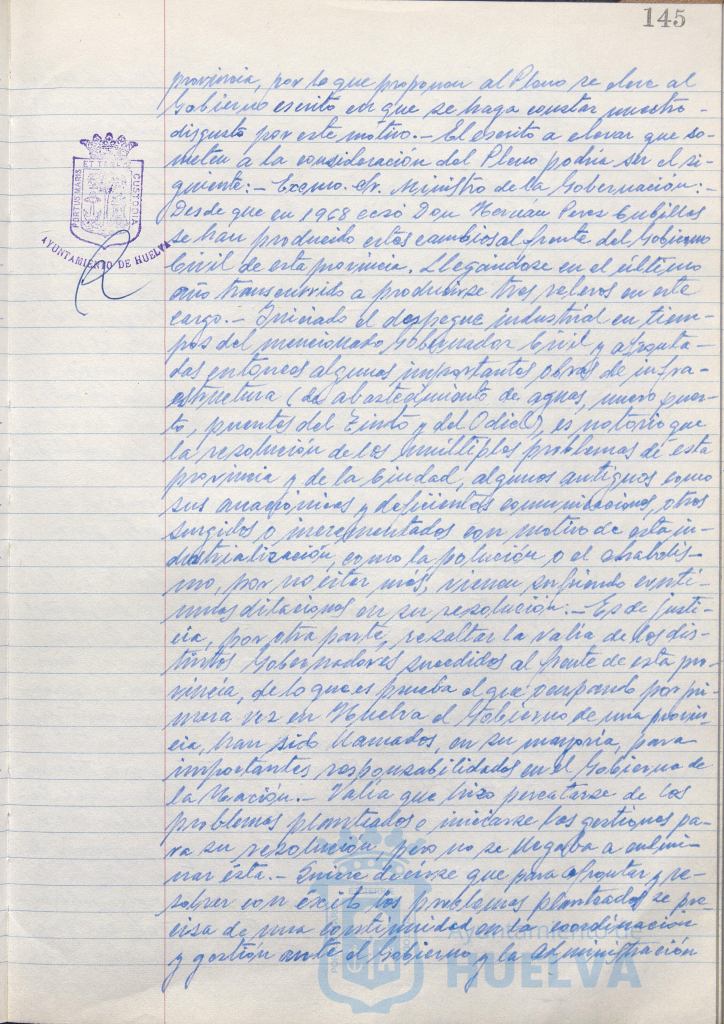 145
provincia, por lo que proponen al Pleno se eleve al
Gobierno escrito en que se haga constar nuestro
disgusto por este motivo.- El escrito a elevar que so-
meten a la consideración del Pleno podría ser el si-
guiente:- Excmo. Sr. Ministro de la Gobernación:-
Desde que en 1968 cesó Don Hernán Perez Cubillas
se han producido estos cambios al frente del Gobierno
Civil de esta provincia. Llegándose en el último
año transcurrido a producirse tres relevos en este
cargo.- Iniciado el despegue industrial en tiem-
pos del mencionado Gobernador Civil y afronta-
das entonces algunas importantes obras de infra-
estructura (de abastecimiento de aguas, nuevo puer-
to, puentes del Tinto y del Odiel), es notorio que
la resolución de los múltiples problemas de esta
provincia y de la Ciudad, algunos antiguos como
sus anacrónicas y deficientes comunicaciones, otros
surgidos o incrementados con motivo de esta in-
dustrialización, como la polución o el chabolis-
mo, por no citar más, vienen sufriendo conti-
nuas dilaciones en su resolución.- Es de justi-
cia, por otra parte, resaltar la valía de los dis-
tintos Gobernadores sucedidos al frente de esta pro-
vincia, de lo que es prueba el que ocupando por pri-
mera vez en Huelva el Gobierno de una provin-
cia, han sido llamados, en su mayoría, para
importantes responsabilidades en el Gobierno de
la Nación.- Valía que hizo percatarse de los
problemas planteados e iniciarse las gestiones pa-
ra su resolución, pero no se llegaba a culmi-
nar ésta.- decirse que para afrontar y re-
solver con éxito los problemas planteados se pre-
cisa de una continuidad en la coordinación
y gestión ante el Gobierno y la Administración
PORTUS MARIS ET TERRAE CUSTODIA
AYUNTAMIENTO DE HUELVA
Ayuntamiento de
HUELVA